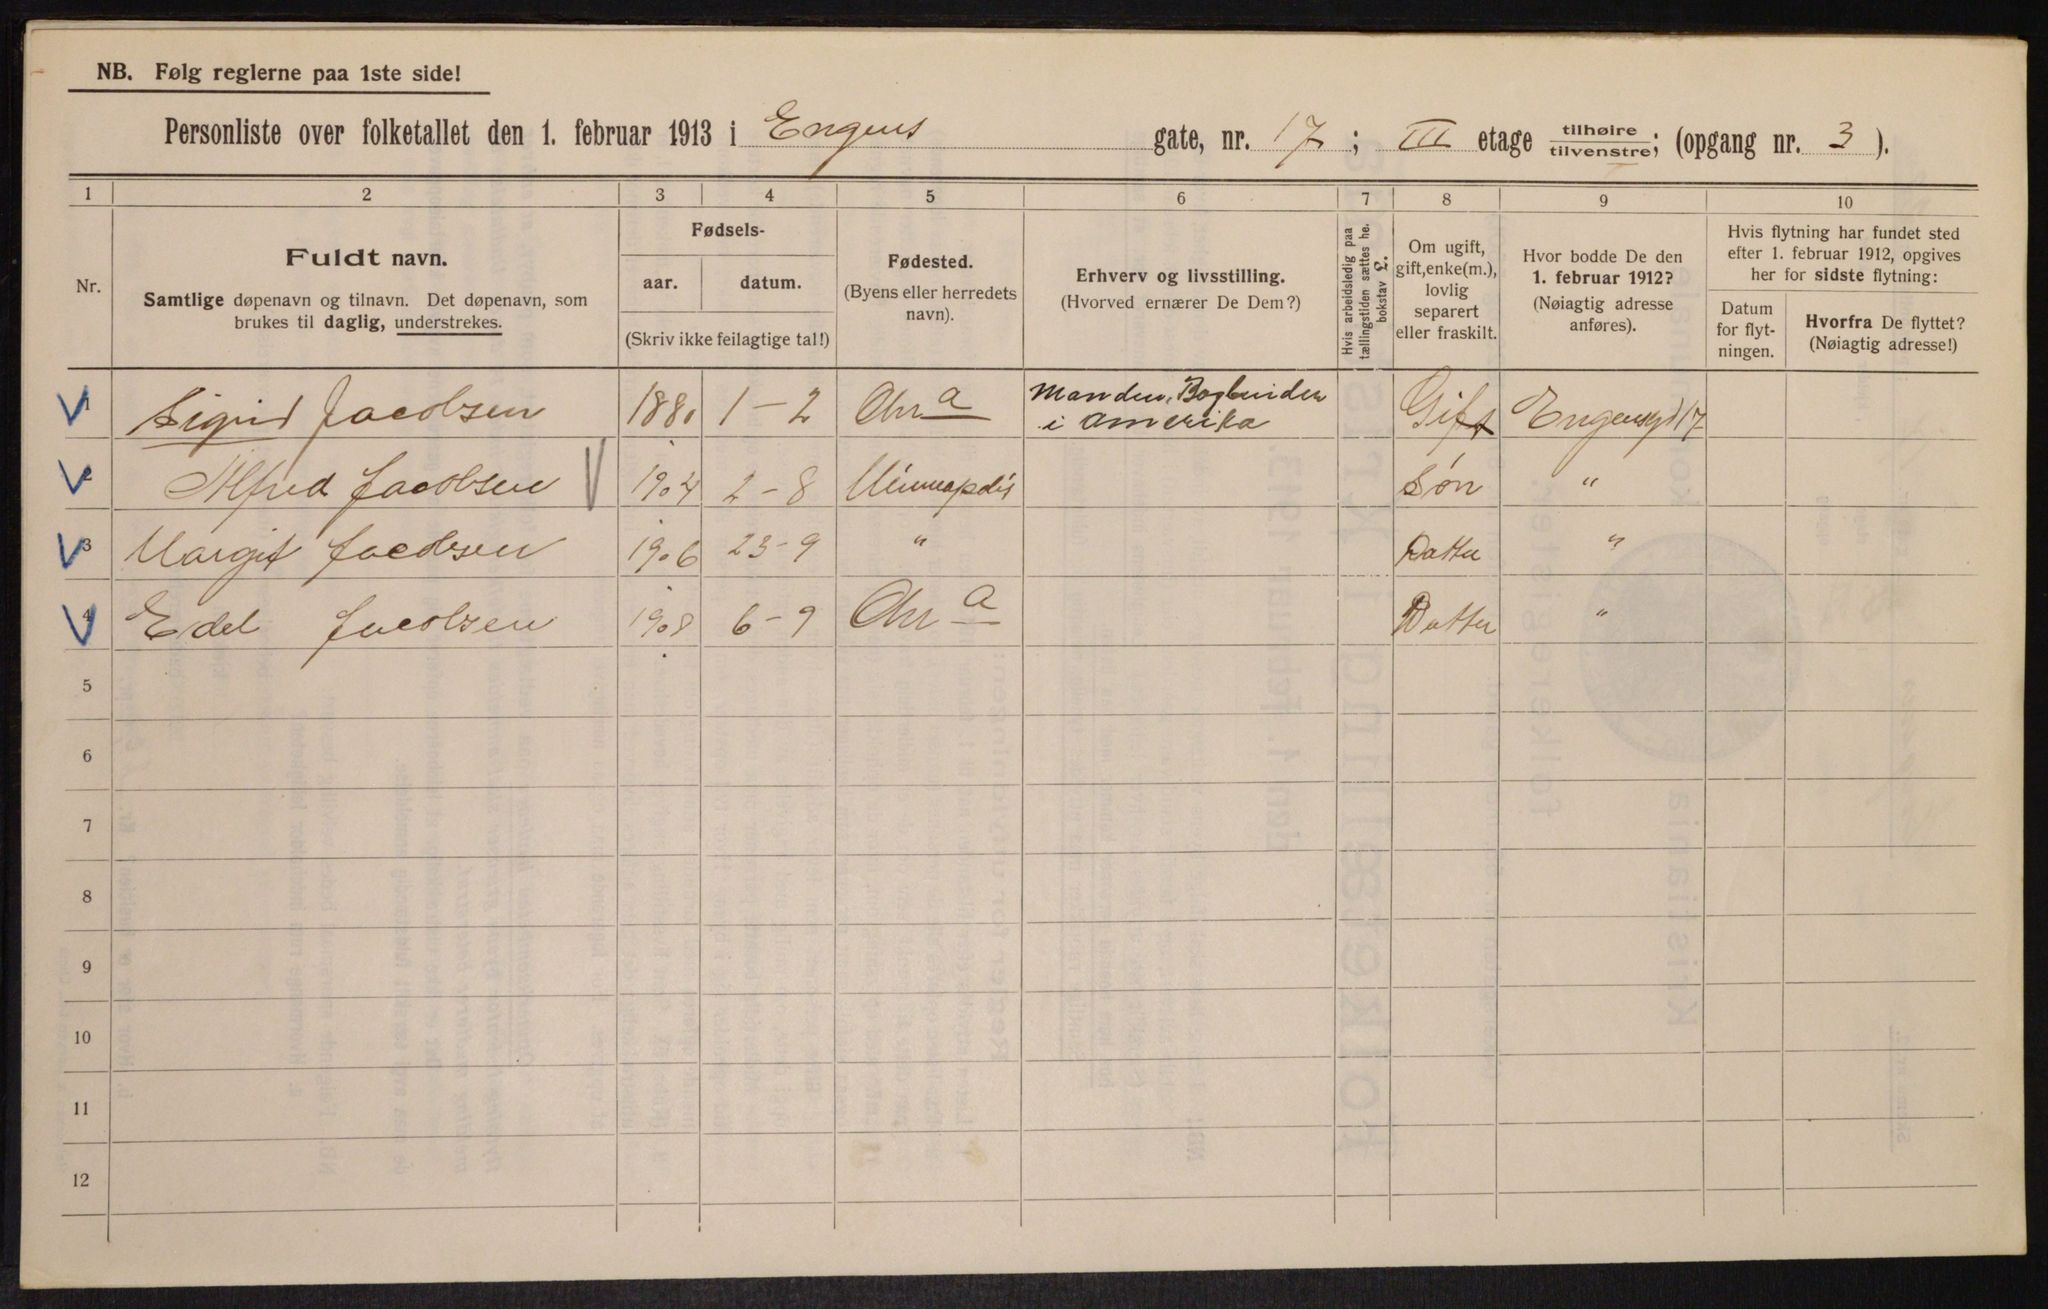 NB. Følg reglerne paa 1ste side!
Personliste over folketallet den 1. februar 1913 i Engens gate, nr. 17; III etage tilhøire / tilvenstre; (opgang nr. 3).
1 2 3 4 5 6 7 8 9 10
Nr.
Fuldt navn.
Samtlige døpenavn og tilnavn. Det døpenavn, som
brukes til daglig, understrekes.
Fødsels-
aar. datum.
(Skriv ikke feilagtige tal!)
Fødested.
(Byens eller herredets
navn).
Erhverv og livsstilling.
(Hvorved ernærer De Dem?)
Hvis arbeidsledig paa
tællingstiden sættes he.
bokstav £.
Om ugift,
gift, enke(m.),
lovlig
separert
eller fraskilt.
Hvor bodde De den
1. februar 1912?
(Nøiagtig adresse
anføres).
Hvis flytning har fundet sted
efter 1. februar 1912, opgives
her for sidste flytning:
Datum
for flyt-
ningen.
Hvorfra De flyttet?
(Nøiagtig adresse!)
1 Sigrid Jacobsen 1880 1-2 Chr a Manden, Bogbinder Gift Engensgd 17
i Amerika
2 Alfred Jacobsen 1904 2-8 Minneapolis Søn "
3 Margit Jacobsen 1906 23-9 " Datter "
4 Edel Jacobsen 1908 6-9 Chr a Datter "
5
6
7
8
9
10
11
12